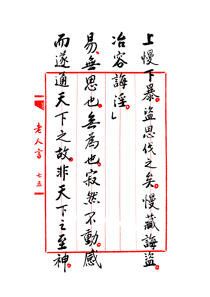 上慢下暴盜思伐之矣。慢藏誨盜。
冶容誨淫。」
易。無思也。無為也。寂然不動。感
而遂通天下之故。非天下之至神。
老人言 七五